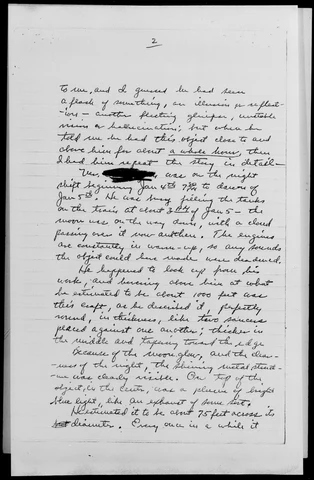 2
to me, and I guessed he had seen
a flash of something, an illusion or reflect-
-ions - another fleeting glimpse, unstable
vision or hallucination; but when he
told me he had this object close to and
above him for about a whole hour, then
I had him repeat the story in detail -
was on the night
shift beginning Jan 4th to dawn of
Jan 5th. He was busy filling the tanks
on the trains at about of Jan 5 - the
moon was on the way down, with a cloud
passing over it now and then. The engines
are constantly in warm-up, so any sounds
the object could have made were deadened.
He happened to look up from his
work, and hovering above him at what
he estimated to be about 1000 feet was
this craft, as he described it, perfectly
round, in thickness, like two saucers
placed against one another; thicker in
the middle and tapering toward the edge
Because of the moonglow, and the clear-
-ness of the night, the shining metal
was clearly visible. On top of the
object, in the centre, was a bright
blue light, like an exhaust of some sort.
He estimated it to be about 75 feet across its
diameter. Every once in a while it